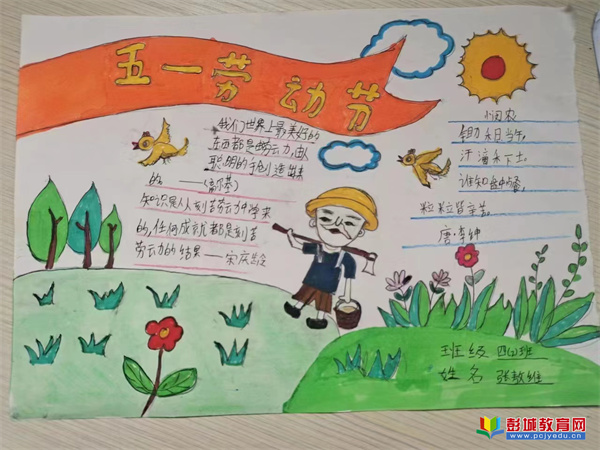 五一劳动节
我们世界上最美好的
东西都是劳动,由人
聪明的手创造出来
的 ——(高尔基)
知识是从刻苦劳动中学来
的,任何成就都是刻苦
劳动的结果——宋庆龄
悯农
锄禾日当午,
汗滴禾下土,
谁知盘中餐,
粒粒皆辛苦。
唐李绅
班级 四(1)班
姓名 张敖维
彭城教育网
www.pcjyedu.cn